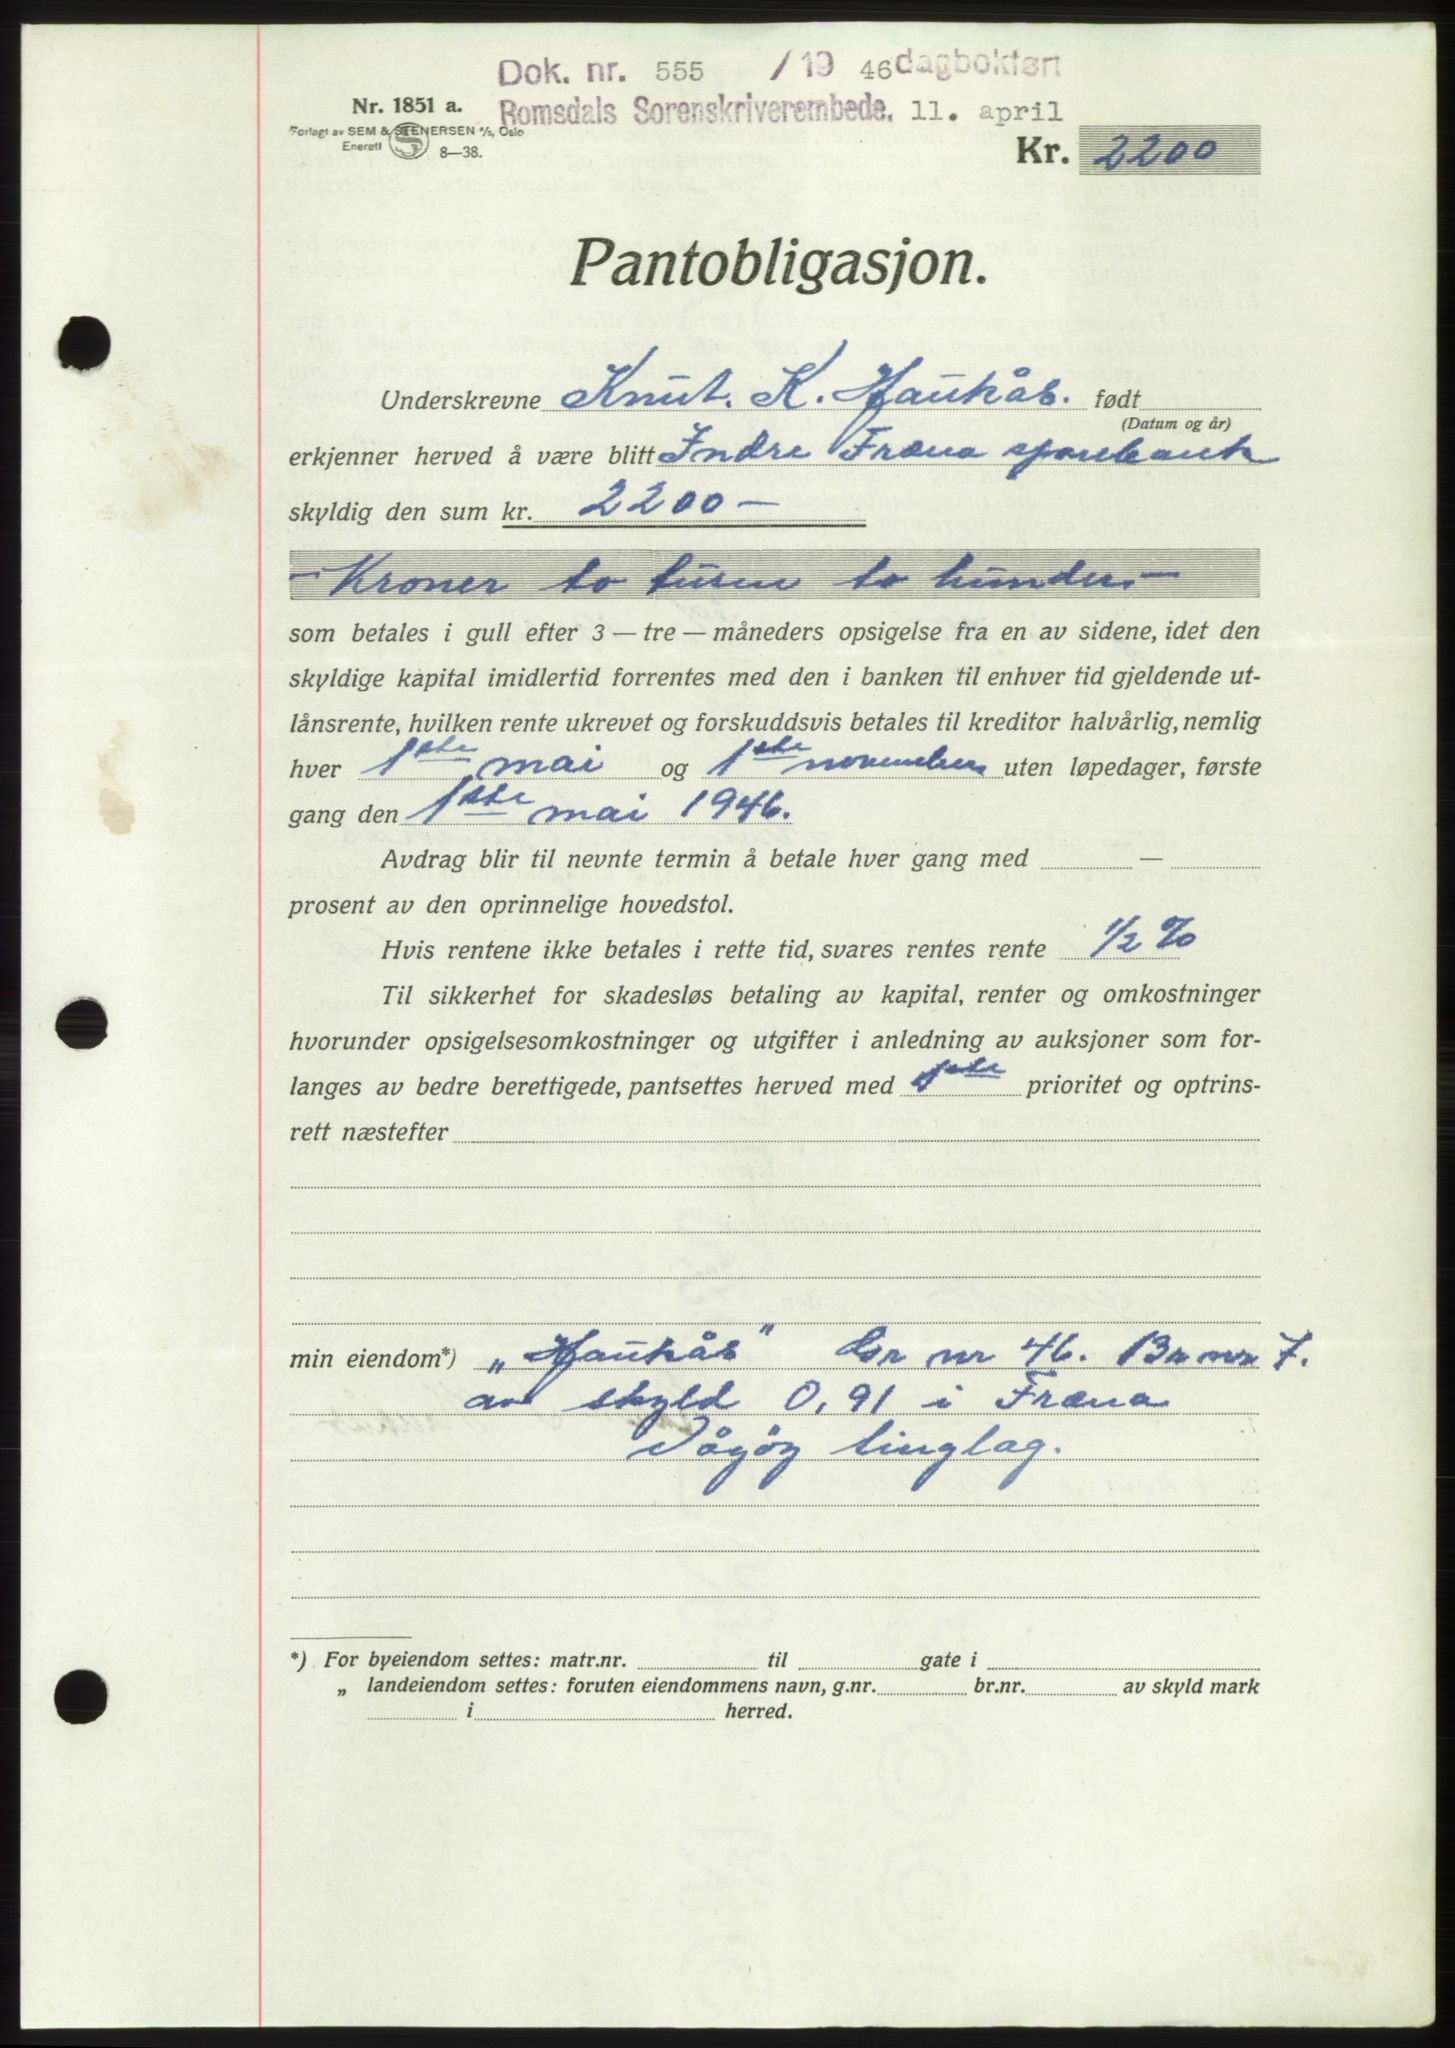 Dok. nr. 555 / 19 46 dagbokført
Nr. 1851 a. Romsdals Sorenskriverembede. 11. april
Forlagt av SEM & STENERSEN A/S, Oslo
Enerett S 8—38.
Kr. 2200
Pantobligasjon.
Underskrevne Knut. K. Haukås. født
(Datum og år)
erkjenner herved å være blitt Indre Fræna sparebank
skyldig den sum kr. 2200 —
— Kroner to tusen to hundre. —
som betales i gull efter 3 — tre — måneders opsigelse fra en av sidene, idet den
skyldige kapital imidlertid forrentes med den i banken til enhver tid gjeldende ut-
lånsrente, hvilken rente ukrevet og forskuddsvis betales til kreditor halvårlig, nemlig
hver 1ste mai og 1ste november uten løpedager, første
gang den 1ste mai 1946.
Avdrag blir til nevnte termin å betale hver gang med —
prosent av den oprinnelige hovedstol.
Hvis rentene ikke betales i rette tid, svares rentes rente 1/2 %
Til sikkerhet for skadesløs betaling av kapital, renter og omkostninger
hvorunder opsigelsesomkostninger og utgifter i anledning av auksjoner som for-
langes av bedre berettigede, pantsettes herved med 1ste prioritet og optrins-
rett næstefter
min eiendom*) „Haukås" Gr nr 46. Br nr 7.
av skyld 0,91 i Fræna
Vågøy tinglag.
*) For byeiendom settes: matr.nr. til gate i
„ landeiendom settes: foruten eiendommens navn, g.nr. br.nr. av skyld mark
i herred.